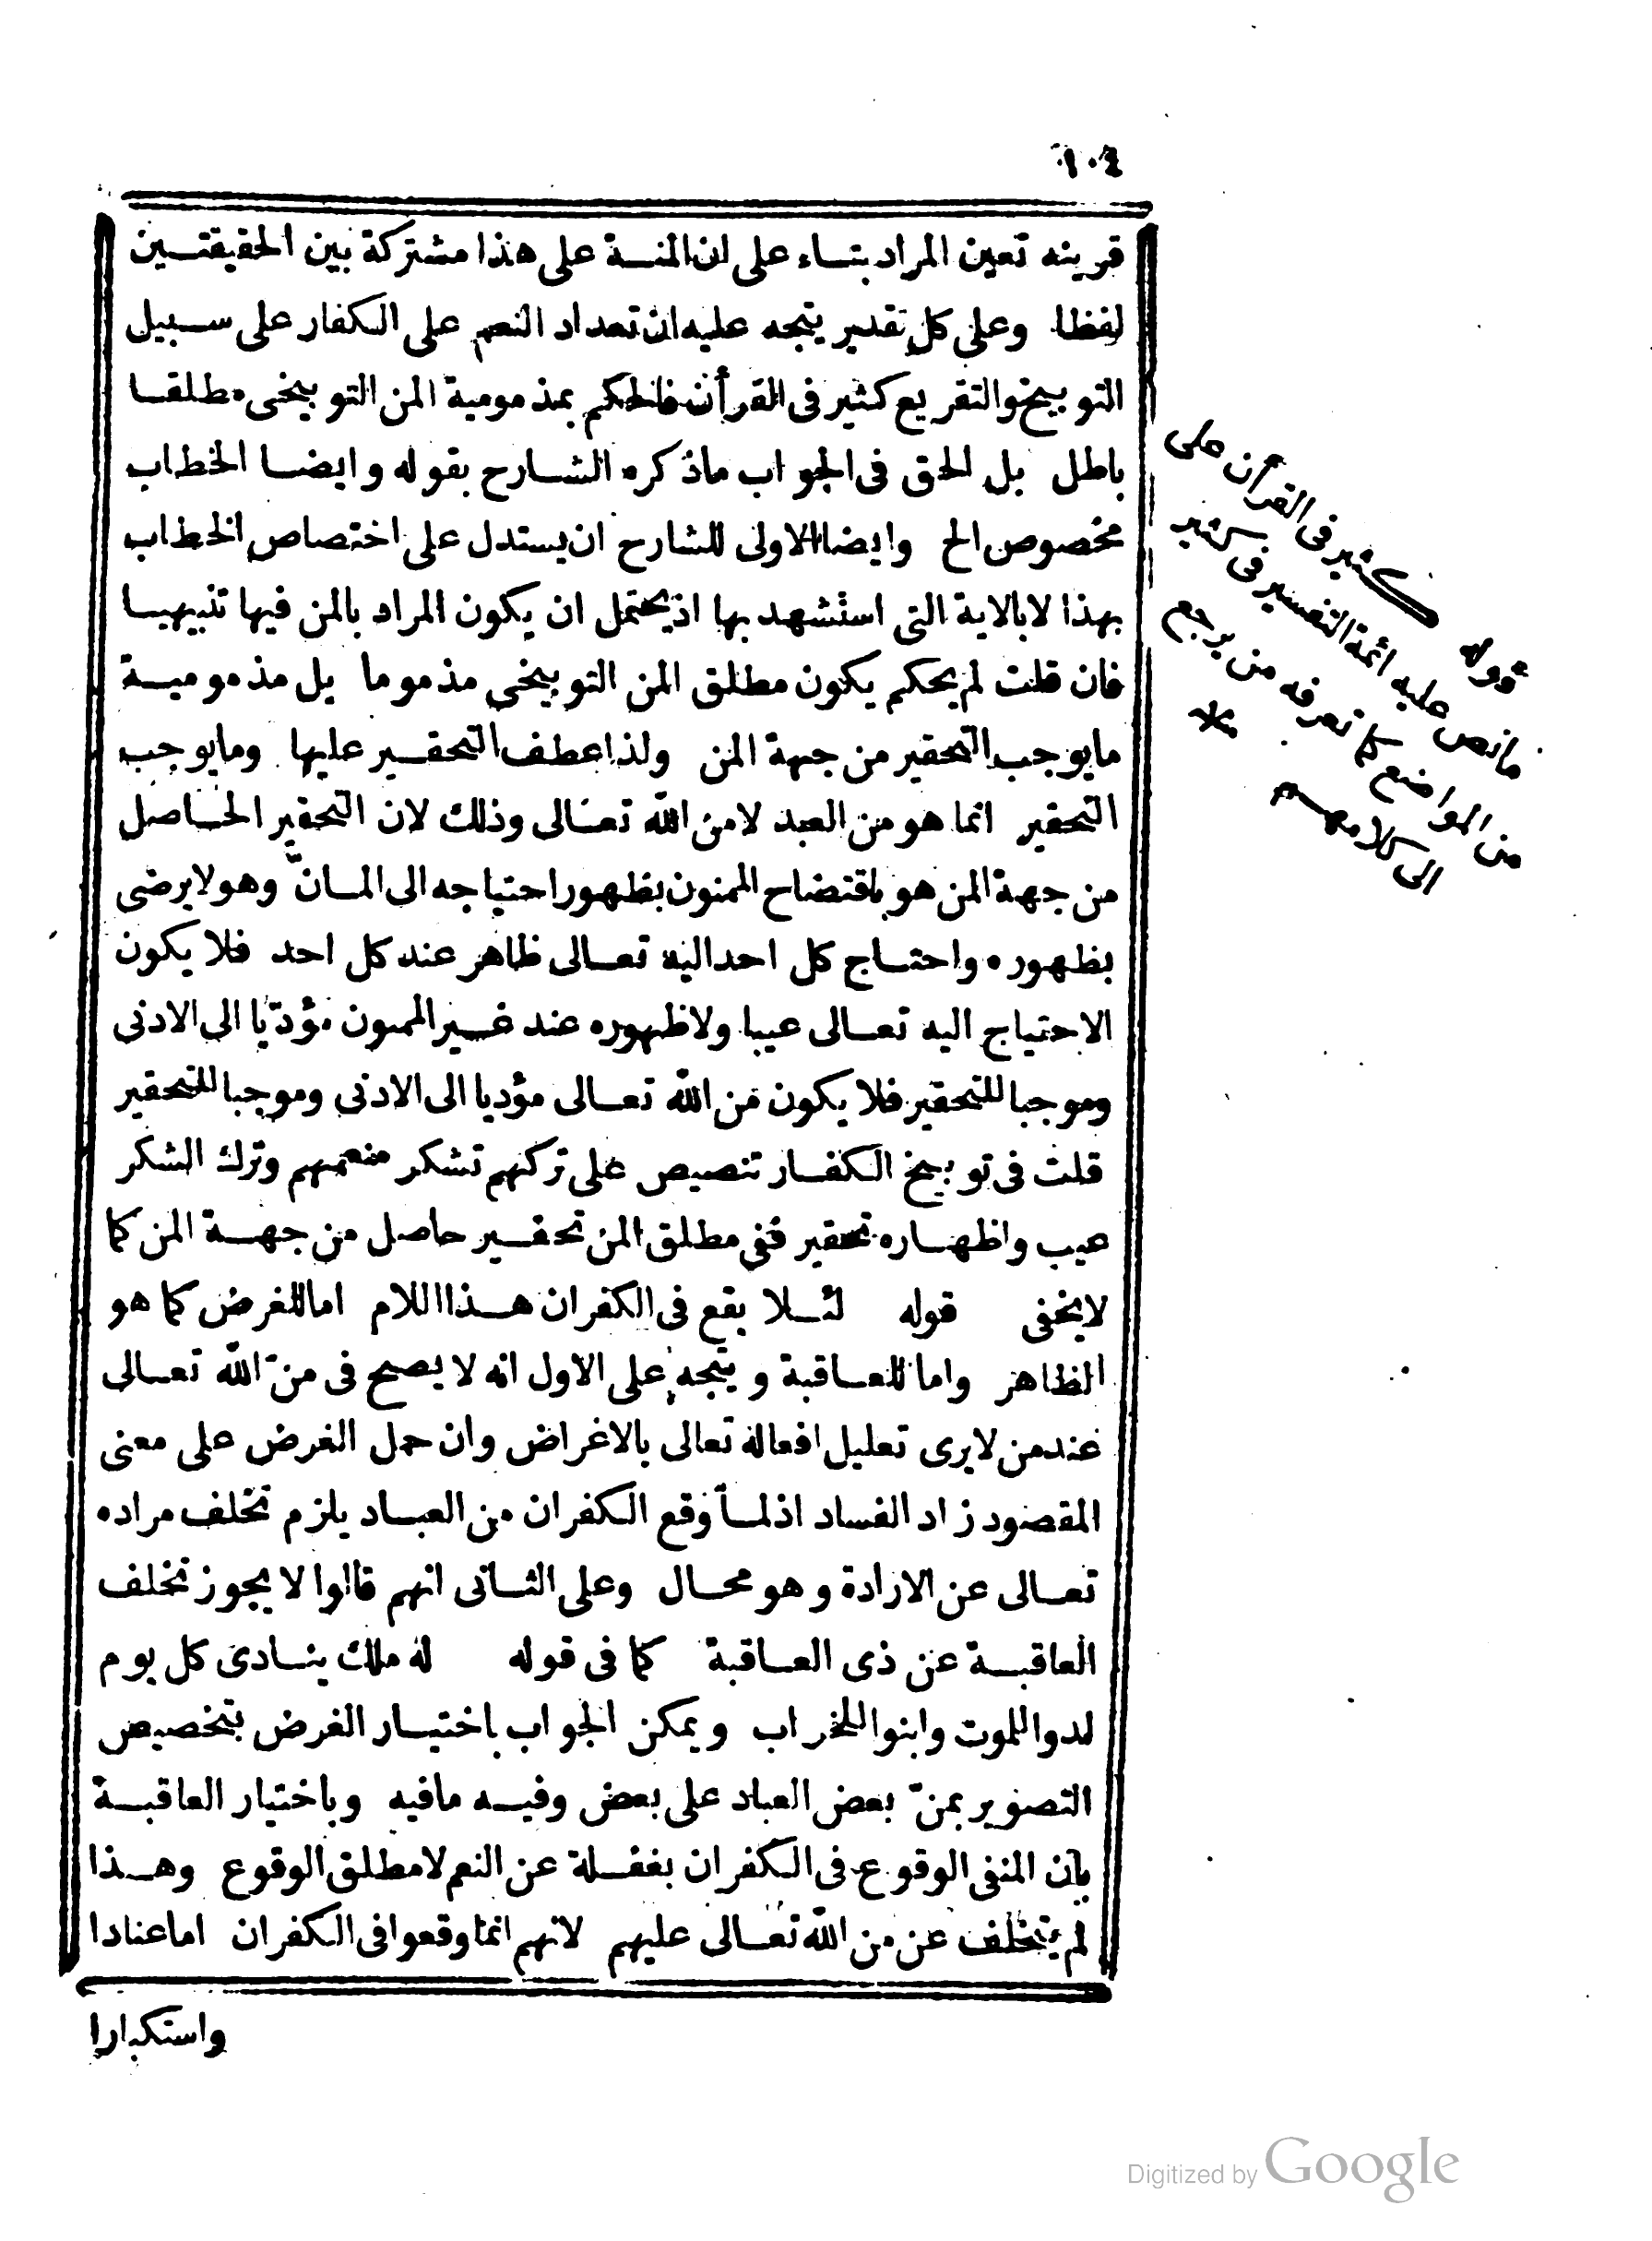 ١٠٤
قرينه تعين المراد بتاء على ان المنة على هذا مشتركة بين الحقيقتين
لفظا وعلى كل تقدير يتجه عليه ان تعداد النعم على الكفار على سبيل
التوبيخ والتقريع كثير فى القرأن فالحكم بمذمومية المن التوبيخى مطلقا
باطل بل الحق فى الجواب ماذكره الشارح بقوله وايضا الخطاب
مخصوص الخ وايضا الاولى للشارح ان يستدل على اختصاص الخطاب
بهذا لا بالاية التى استشهد بها اذ يحتمل ان يكون المراد بالمن فيها تنبيهيا
فان قلت لم يحكم يكون مطلق المن التوبيخى مذموما بل مذمومية
مايوجب التحقير من جهة المن ولذا عطف التحقير عليها ومايوجب
التحقير انما هو من العبد لا من الله تعالى وذلك لان التحقير الحاصل
من جهة المن هو باقتضاح الممنون بظهور احتياجه الى المانّ وهو لا يرضى
بظهوره واحتياج كل احد اليه تعالى ظاهر عند كل احد فلا يكون
الاحتياج اليه تعالى عيبا ولا ظهوره عند غير الممنون مؤدّيا الى الادنى
وموجبا للتحقير فلا يكون مَن الله تعالى مؤديا الى الادنى وموجبا للتحقير
قلت فى توبيخ الكفار تنصيص على تركهم تشكر منعمهم وترك الشكر
عيب واظهاره تحقير ففى مطلق المن تحقير حاصل من جهة المن كما
لا يخفى قوله لئلا يقع فى الكفران هذا اللام اما للغرض كما هو
الظاهر واما للعاقبة ويتجه على الاول انه لا يصح فى منّ الله تعالى
عند من لا يرى تعليل افعاله تعالى بالاغراض وان حمل الغرض على معنى
المقصود زاد الفساد اذ لما وقع الكفران من العباد يلزم تخلف مراده
تعالى عن الارادة وهو محال وعلى الثانى انهم قالوا لا يجوز تخلف
العاقبة عن ذى العاقبة كما فى قوله له ملك ينادى كل يوم
لدوا للموت وابنوا للخراب ويمكن الجواب باختيار الغرض بتخصيص
التصوير بمنّ بعض العباد على بعض وفيه مافيه وباختيار العاقبة
بان المنفى الوقوع فى الكفران بغفلة عن النعم لا مطلق الوقوع وهذا
لم يتخلف عن من الله تعالى عليهم لانهم انما وقعوا فى الكفران اما عنادا
واستكبارا
قوله كثير فى القرأن على
مانص عليه ائمة التفسير فى كثير
من المواضع كما تعرفه من يرجع
الى كلامهم
Digitized by Google